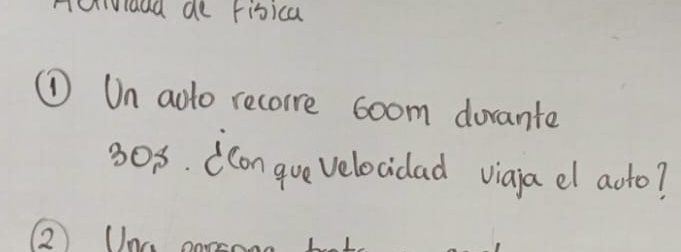 Actividad de Física
① Un auto recorre 600m durante
30s. ¿Con que velocidad viaja el auto?
② Una persona